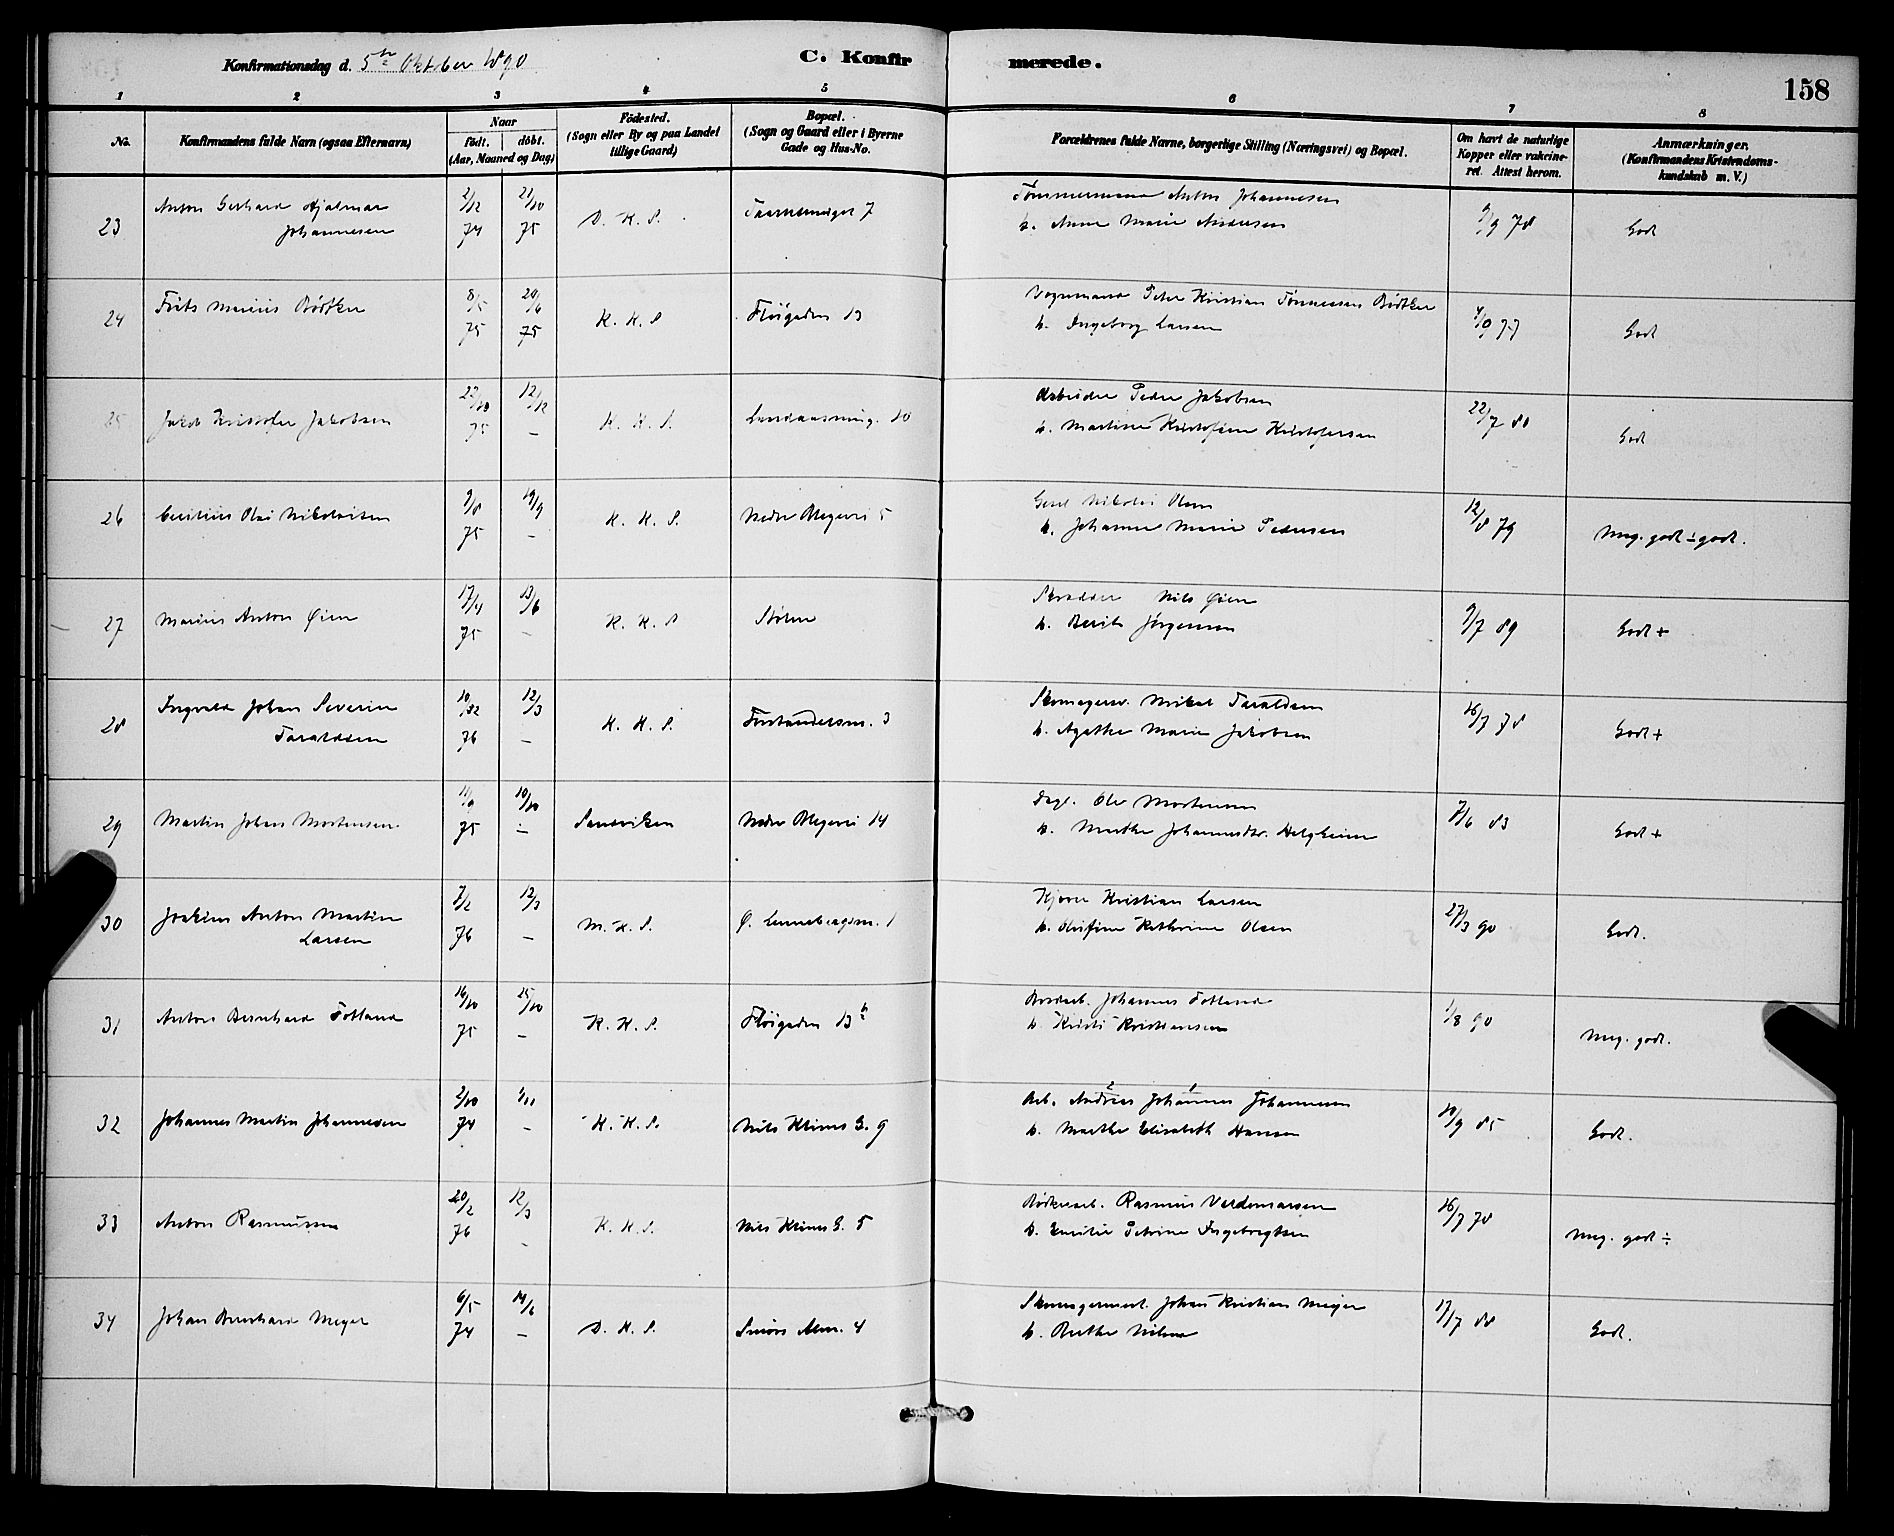 Konfirmationsdag d. 5te Oktober 1890
C. Konfirmerede.
158
1 2 3 4 5 6 7 8
No.
Konfirmandens fulde Navn (ogsaa Efternavn)
Naar
født. døbt.
(Aar, Maaned og Dag)
Födested.
(Sogn eller By og paa Landet
tillige Gaard)
Bopæl.
(Sogn og Gaard eller i Byerne
Gade og Hus-No.
Forældrenes fulde Navne, borgerlige Stilling (Næringsvei) og Bopæl.
Om havt de naturlige
Kopper eller vakcine-
ret. Attest herom.
Anmærkninger.
(Konfirmandens Kristendoms-
kundskab m. V.)
23 Anton Gerhard Hjalmar Johannesen 2/12 74 21/10 75 D. K. S. 7 Tømmermand Anton Johannesen h. Anne Marie Andersen 9/9 78 Godt
24 Frits Marius Bødtker 8/5 75 20/6 75 K. K. S Fløigaden 13 Vognmand Peter Kristian Tønnessen Bødtker h. Ingeborg Larsen 4/9 77 Godt
25 Jakob Kristofer Jakobsen 23/10 75 12/12 — K. K. S. 10 Arbeider Peder Jakobsen h. Martine Kristofine Kristofersen 22/7 80 Godt
26 Olai Nikolaisen 9/8 75 19/9 — K. K. S. Nedre Blegevei 5 Nikolai Olsen h. Johanne Marie Pedersen 12/8 79 Meg. godt ÷ godt.
27 Marius Anton Øien 17/4 75 13/6 — K. K. S Stølen Skrædder Nils Øien h. Berit Jørgensen 9/7 89 Godt +
28 Ingvald Johan Severin Taraldsen 10/12 76 12/3 — K. K. S. Forstandersm. 3 Skomagersv. Mikal Taraldsen h. Agathe Marie Jakobsen 16/7 78 Godt +
29 Martin Johan Mortensen 11/9 75 10/10 — Sandviken Nedre Blegevei 14 Dagl. Ole Mortensen h. Marthe Johannesdtr. Helgheim 7/6 83 Godt +
30 Joakim Anton Martin Larsen 7/2 76 12/3 — M. K. S. 1 Kjører Kristian Larsen h. Olufine Kathrine Olsen 27/3 90 Godt.
31 Anton Bernhard Totland 16/10 75 25/10 — K. K. S. Fløigaden 13 b Johannes Totland h. Kristi Kristiansen 1/8 90 Meg. godt.
32 Johannes Martin Johannesen 2/10 74 — K. K. S. Nils Klims G. 9 Arb. Andreas 2 Johannes 1 Johannesen h. Marthe Elisabeth Hansen 10/9 85 Godt.
33 Anton Rasmussen 20/2 76 12/3 — K. K. S. Nils Klims G. 5 Bødkerarb. Rasmus Valdemarsen h. Emilie Petrine Ingebrigtsen 16/7 78 Meg. godt ÷
34 Johan Bernhard Meyer 6/5 74 14/6 — D. K. S. Smørs Alm. 4 Skomagermest. Johan Kristian Meyer h. Berthe Nilsen 17/7 88 Godt.